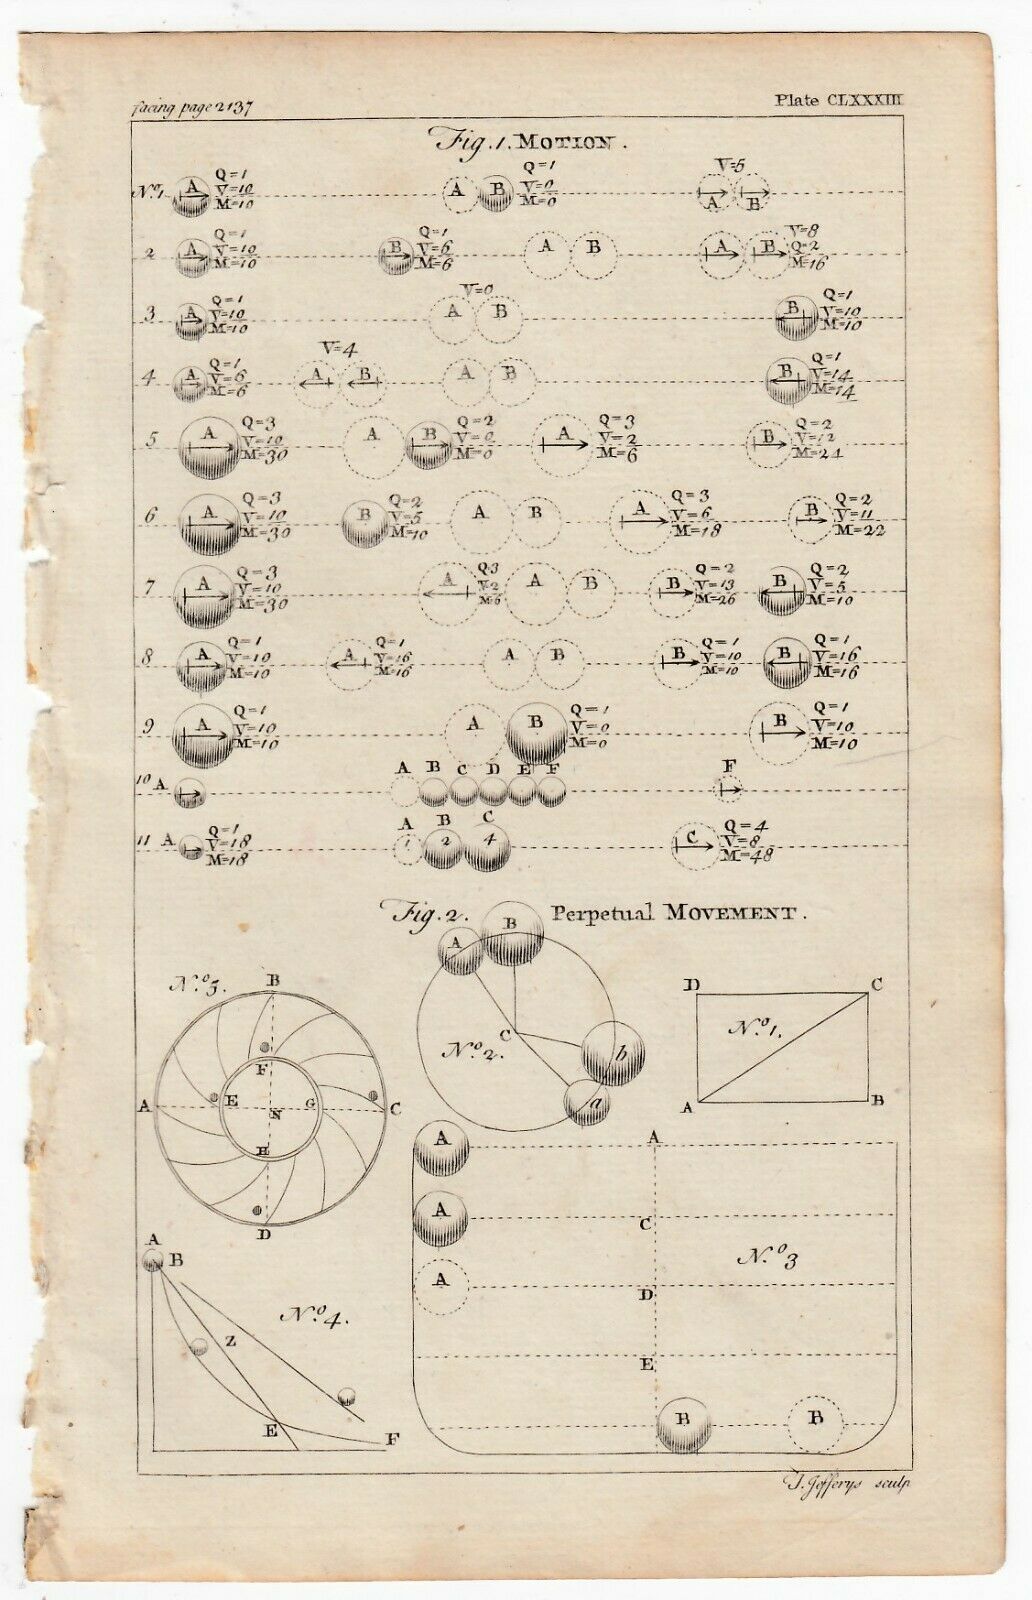 facing page 2137
Plate CLXXXIII
Fig. 1. MOTION.
No. 1 A Q=1 V=10 M=10 A B Q=1 V=0 M=0 V=5 A B
2 A Q=1 V=10 M=10 B Q=1 V=6 M=6 A B A B V=8 Q=2 M=16
3 A Q=1 V=10 M=10 V=0 A B B Q=1 V=10 M=10
4 A Q=1 V=6 M=6 V=4 A B A B B Q=1 V=14 M=14
5 A Q=3 V=10 M=30 A B Q=2 V=0 M=0 A Q=3 V=2 M=6 B Q=2 V=12 M=24
6 A Q=3 V=10 M=30 B Q=2 V=5 M=10 A B A Q=3 V=6 M=18 B Q=2 V=11 M=22
7 A Q=3 V=10 M=30 A Q3 V2 M6 A B B Q=2 V=13 M=26 B Q=2 V=5 M=10
8 A Q=1 V=10 M=10 A Q=1 V=16 M=16 A B B Q=1 V=10 M=10 B Q=1 V=16 M=16
9 A Q=1 V=10 M=10 A B Q=1 V=0 M=0 B Q=1 V=10 M=10
10 A A B C D E F F
11 A Q=1 V=18 M=18 A B C 1 2 4 C Q=4 V=8 M=48
Fig. 2. Perpetual MOVEMENT.
No. 3.
B
F
A E N G C
H
D
A B
C
No. 2.
b
a
D C
No. 1.
A B
A B
No. 4.
Z
E F
A A
A C
No. 3
A D
E
B B
T. Jefferys sculp